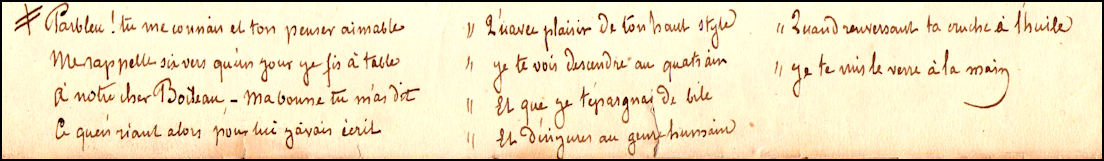 Parbleu ! tu me connais et ton penser aimable
Me rappelle six vers qu'un jour je fis à table
à notre cher Boileau - ma bonne tu m'as dit
Ce qu'en riant alors pour lui j'avais écrit
" Qu'avec plaisir de ton haut style
" je te vois descendre au quatrain
" Et que je t'épargnai de bile
" Et d'injures au genre humain
" Quand renversant ta cruche à l'huile
" je te mis le verre à la main